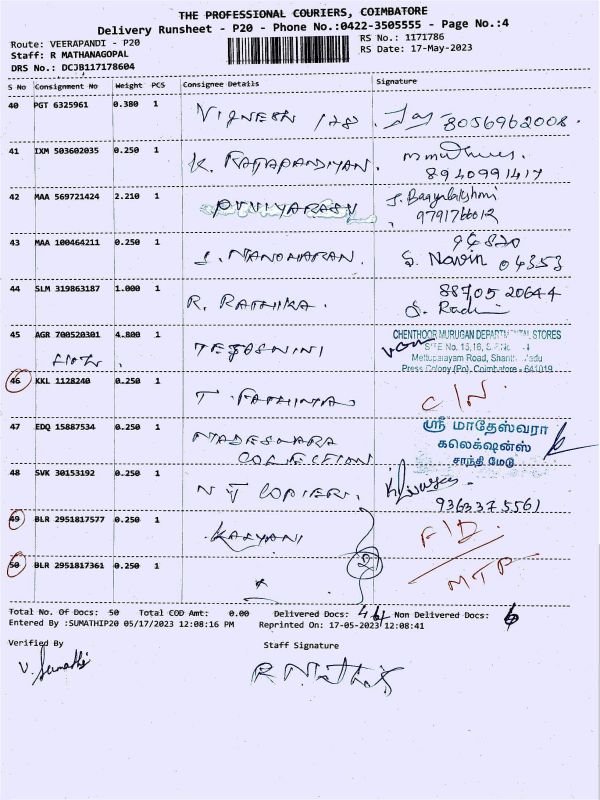 THE PROFESSIONAL COURIERS, COIMBATORE
Delivery Runsheet - P20 - Phone No.:0422-3505555 - Page No.:4
Route: VEERAPANDI - P20
Staff: R MATHANAGOPAL
DRS No.: DCJB117178604
RS No.: 1171786
RS Date: 17-May-2023
S No Consignment No Weight PCS Consignee Details Signature
40 PGT 6325961 0.380 1 VIGNESH 128 8056962008
41 IXM 503602035 0.250 1 K. RAJAPANDIYAN.
8940991417
42 MAA 569721424 2.210 1 PUNIYARASU J. Bagyalakshmi
9791766012
43 MAA 100464211 0.250 1 J. MANOHARAN. 96820
S. Navin 04353
44 SLM 319863187 1.000 1 R. RATHIKA. 88705 20644
45 AGR 700520301 4.800 1 TEJOSHINI
CHENTHOOR MURUGAN DEPARTMENTAL STORES
SITE No. 15,16,
Mettupalayam Road,
Press Colony (Po), Coimbatore - 641019
46 KKL 1128240 0.250 1 T. FATHIMA C/N.
47 EDQ 15887534 0.250 1 MADESWARA
COLLECTION
ஸ்ரீ மாதேஸ்வரா
கலெக்ஷன்ஸ்
சாந்தி மேடு
48 SVK 30153192 0.250 1 N J COPIER.
9363375561
49 BLR 2951817577 0.250 1 KALYANI F/D.
50 BLR 2951817361 0.250 1 2 MTP
Total No. Of Docs: 50 Total COD Amt: 0.00 Delivered Docs: 44 Non Delivered Docs: 6
Entered By :SUMATHIP20 05/17/2023 12:08:16 PM Reprinted On: 17-05-2023 12:08:41
Verified By
Staff Signature
V. Sumathi